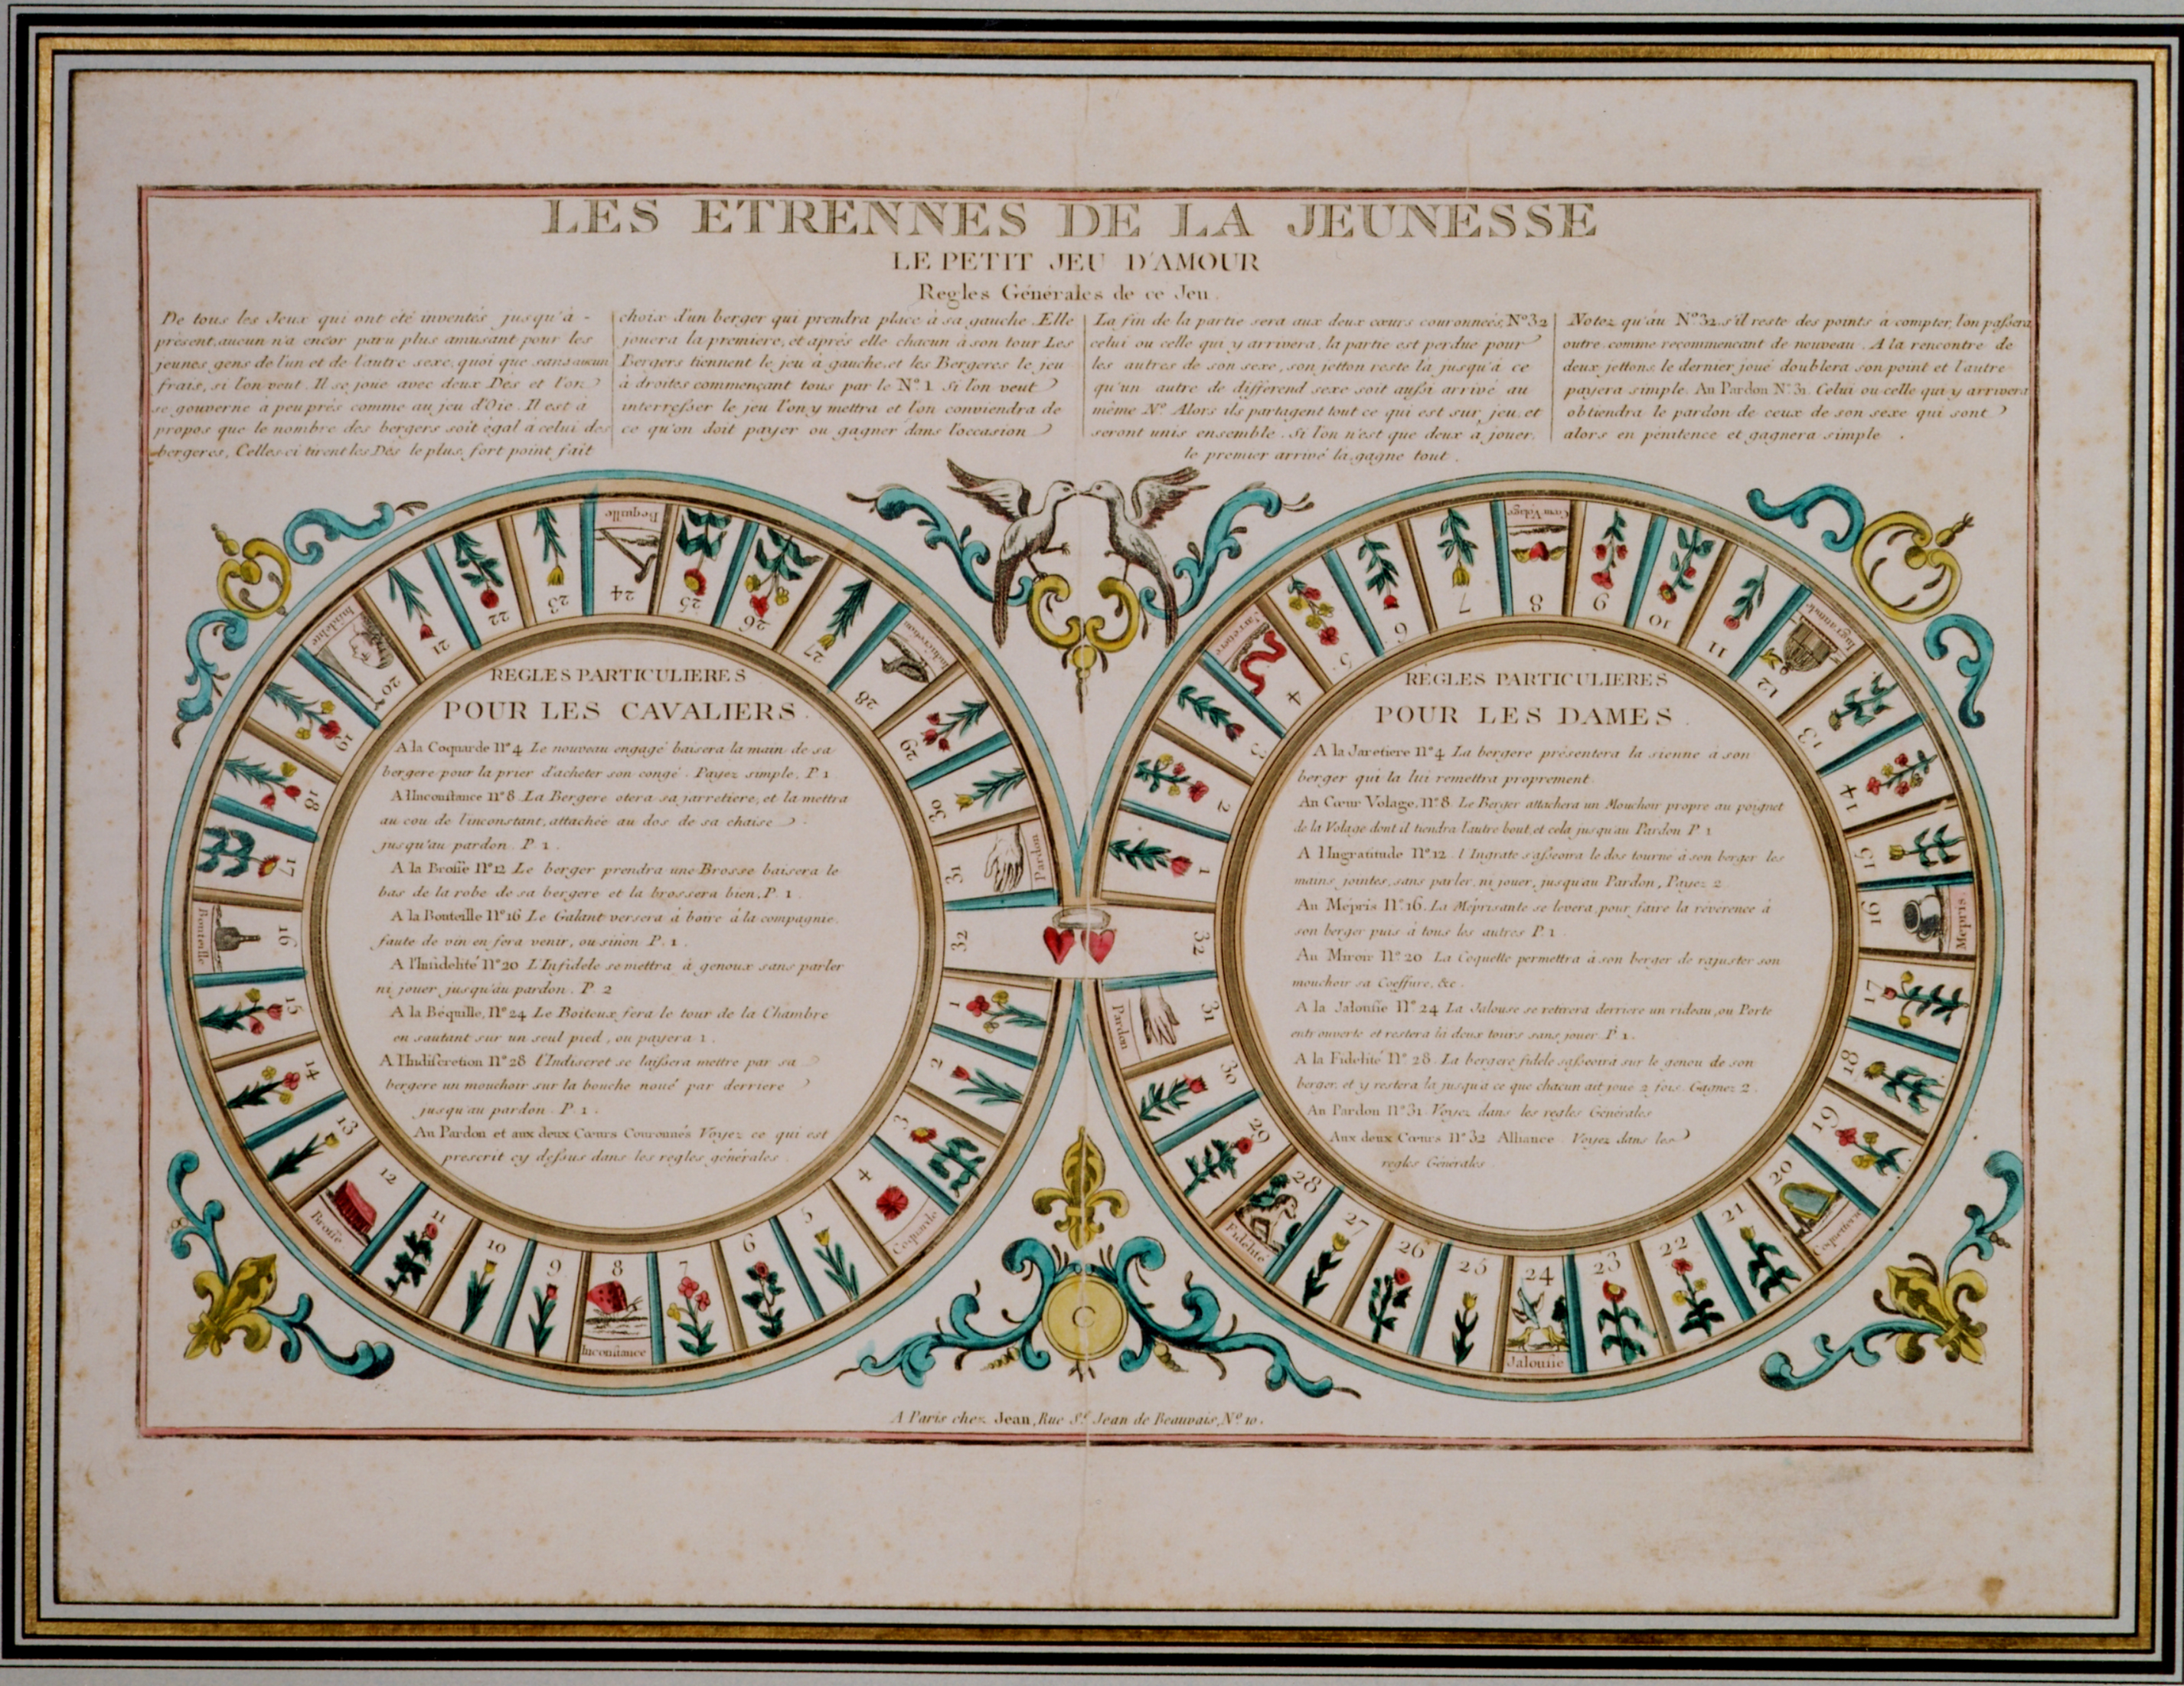 LES ETRENNES DE LA JEUNESSE
LE PETIT JEU D'AMOUR
Regles Générales de ce Jeu.
De tous les Jeux qui ont été inventés jusqu'à -
présent, aucun n'a encor paru plus amusant pour les
jeunes gens de l'un et de l'autre sexe, quoi que sans aucun
frais, si l'on veut. Il se joue avec deux Dés et l'on
se gouverne à peu près comme au jeu d'Oie. Il est à
propos que le nombre des bergers soit égal à celui des
bergeres, Celles-ci tirent les Dés le plus fort point fait
choix d'un berger qui prendra place à sa gauche. Elle
jouera la premiere, et après elle chacun à son tour Les
Bergers tiennent le jeu à gauche, et les Bergeres le jeu
à droites commençant tous par le N.º 1. Si l'on veut
interresser le jeu l'on y mettra et l'on conviendra de
ce qu'on doit payer ou gagner dans l'occasion
La fin de la partie sera aux deux cœurs couronnées, Nº 32
celui ou celle qui y arrivera, la partie est perdue pour
les autres de son sexe, son jetton reste là jusqu'à ce
qu'un autre de différend sexe soit aussi arrivé au
même Nº. Alors ils partagent tout ce qui est sur jeu, et
seront unis ensemble. Si l'on n'est que deux à jouer,
le premier arrivé là, gagne tout.
Notez qu'au Nº 32, s'il reste des points à compter, l'on passera
outre, comme recommencant de nouveau. A la rencontre de
deux jettons, le dernier joué doublera son point et l'autre
payera simple. Au Pardon Nº 31. Celui ou celle qui y arrivera
obtiendra le pardon de ceux de son sexe qui sont
alors en pénitence et gagnera simple.
REGLES PARTICULIERES
POUR LES CAVALIERS.
A la Coquarde nº 4 Le nouveau engagé baisera la main de sa
bergere pour la prier d'acheter son congé. Payez simple. P. 1
A l'Inconstance nº 8 La Bergere otera sa jarretiere, et la mettra
au cou de l'inconstant, attachée au dos de sa chaise
jusqu'au pardon. P. 1.
A la Brosse Nº 12 Le berger prendra une Brosse baisera le
bas de la robe de sa bergere et la brossera bien, P. 1.
A la Bouteille nº 16 Le Galant versera à boire à la compagnie.
faute de vin en fera venir, ou sinon P. 1.
A l'Infidelité nº 20 L'Infidele se mettra à genoux sans parler
ni jouer jusqu'au pardon. P. 2
A la Béquille, nº 24 Le Boiteux fera le tour de la Chambre
en sautant sur un seul pied, ou payera 1.
A l'Indiscretion Nº 28 l'Indiscret se laissera mettre par sa
bergere un mouchoir sur la bouche noué par derriere
jusqu'au pardon. P. 1.
Au Pardon et aux deux Cœurs Couronnés Voyez ce qui est
prescrit cy dessus dans les regles générales.
REGLES PARTICULIERES
POUR LES DAMES.
A la Jaretiere nº 4 La bergere présentera la sienne à son
berger qui la lui remettra proprement.
Au Cœur Volage, nº 8. Le Berger attachera un Mouchoir propre au poignet
de la Volage dont il tiendra l'autre bout, et cela jusqu'au Pardon P. 1
A l'Ingratitude nº 12. l'Ingrate s'asseoira le dos tourné à son berger les
mains jointes, sans parler, ni jouer, jusqu'au Pardon, Payez 2.
Au Mépris nº 16. La Méprisante se levera, pour faire la révérence à
son berger puis à tous les autres P. 1.
Au Miroir nº 20 La Coquette permettra à son berger de rajuster son
mouchoir sa Coeffure, &c.
A la Jalousie nº 24 La Jalouse se retirera derriere un rideau, ou Porte
entr'ouverte et restera là deux tours sans jouer P. 1.
A la Fidelité nº 28. La bergere fidele s'asseoira sur le genou de son
berger, et y restera là jusqu'à ce que chacun ait joué 2 fois. Gagnez 2.
Au Pardon nº 31. Voyez dans les regles Générales
Aux deux Cœurs nº 32 Alliance. Voyez dans les
regles Générales.
1
2
3
4 Coquarde
5
6
7
8 Inconstance
9
10
11
12 Brosse
13
14
15
16 Bouteille
17
18
19
20 Infidelité
21
22
23
24 Bequille
25
26
27
28 Indiscretion
29
30
31 Pardon
32
1
2
3
4 Jarretiere
5
6
7
8 Cœur Volage
9
10
11
12 Ingratitude
13
14
15
16 Mepris
17
18
19
20 Coquetterie
21
22
23
24 Jalousie
25
26
27
28 Fidelité
29
30
31 Pardon
32
A Paris chez Jean, Rue St. Jean de Beauvais, Nº 10.